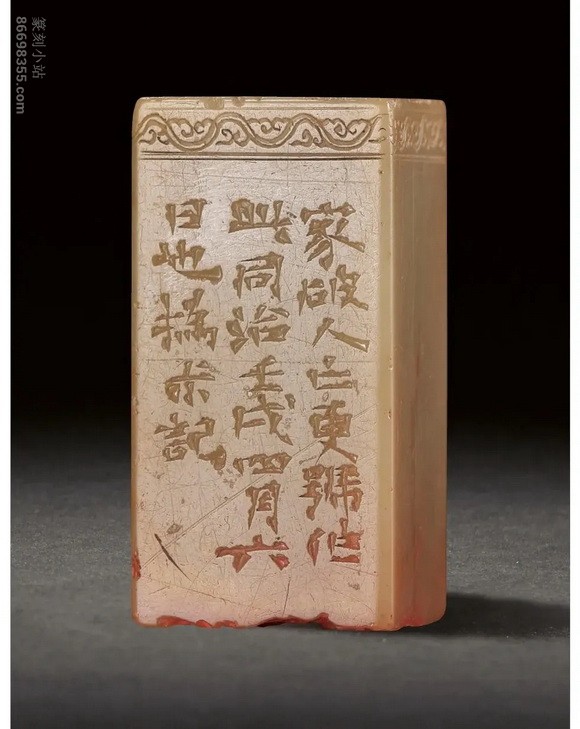 家破人亡更號作
此同治壬戌四月六
日也撝尗記
篆刻小站
86698355.com